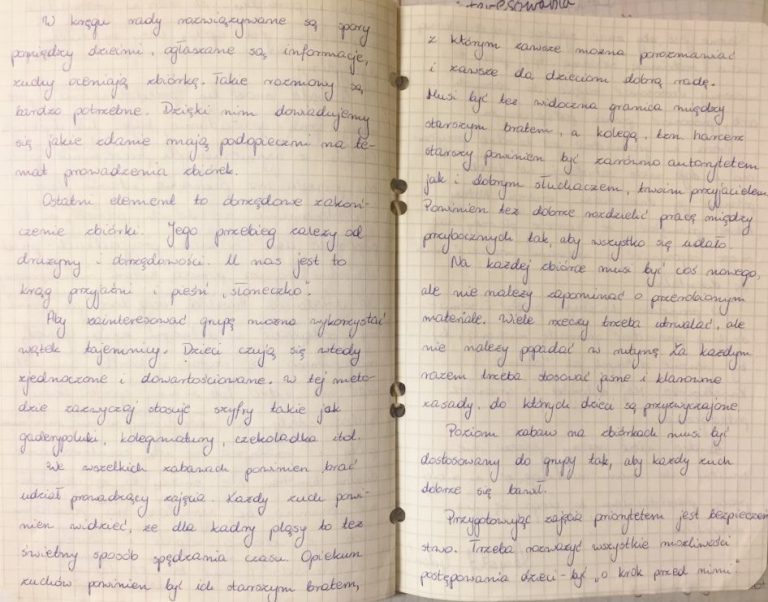 W kręgu rady rozwiązywane są spory
pomiędzy dziećmi, ogłaszane są informacje,
zuchy oceniają zbiórkę. Takie rozmowy są
bardzo potrzebne. Dzięki nim dowiadujemy
się jakie zdanie mają podopieczni na te-
mat prowadzenia zbiórek.
Ostatni element to obrzędowe zakoń-
czenie zbiórki. Jego przebieg zależy od
drużyny i obrzędowości. U nas jest to
krąg przyjaźni i pieśń "słoneczko".
Aby zainteresować grupę można wykorzystać
wątek tajemnicy. Dzieci czują się wtedy
zjednoczone i dowartościowane. W tej meto-
dzie zazwyczaj stosuję szyfry takie jak
gaderypoluki, kolegminatury, czekoladka itd.
We wszelkich zabawach powinien brać
udział prowadzący zajęcia. Każdy zuch powi-
nien widzieć, że dla kadry pląsy to też
świetny sposób spędzania czasu. Opiekun
zuchów powinien być ich starszym bratem,
z którym zawsze można porozmawiać
i zawsze da dzieciom dobrą radę.
Musi być też widoczna granica między
starszym bratem, a kolegą, tzn harcerz
starszy powinien być zarówno autorytetem
jak i dobrym słuchaczem, twoim przyjacielem.
Powinien też dobrze rozdzielić pracę między
przybocznych tak, aby wszystko się udało.
Na każdej zbiórce musi być coś nowego,
ale nie należy zapominać o przerobionym
materiale. Wiele rzeczy trzeba utrwalać, ale
nie należy popadać w rutynę. Za każdym
razem trzeba stosować jasne i klarowne
zasady, do których dzieci są przyzwyczajone.
Poziom zabaw na zbiórkach musi być
dostosowany do grupy tak, aby każdy zuch
dobrze się bawił.
Przygotowując zajęcia priorytetem jest bezpieczeń
stwo. Trzeba rozważyć wszystkie możliwości
postępowania dzieci - być "o krok przed nimi".